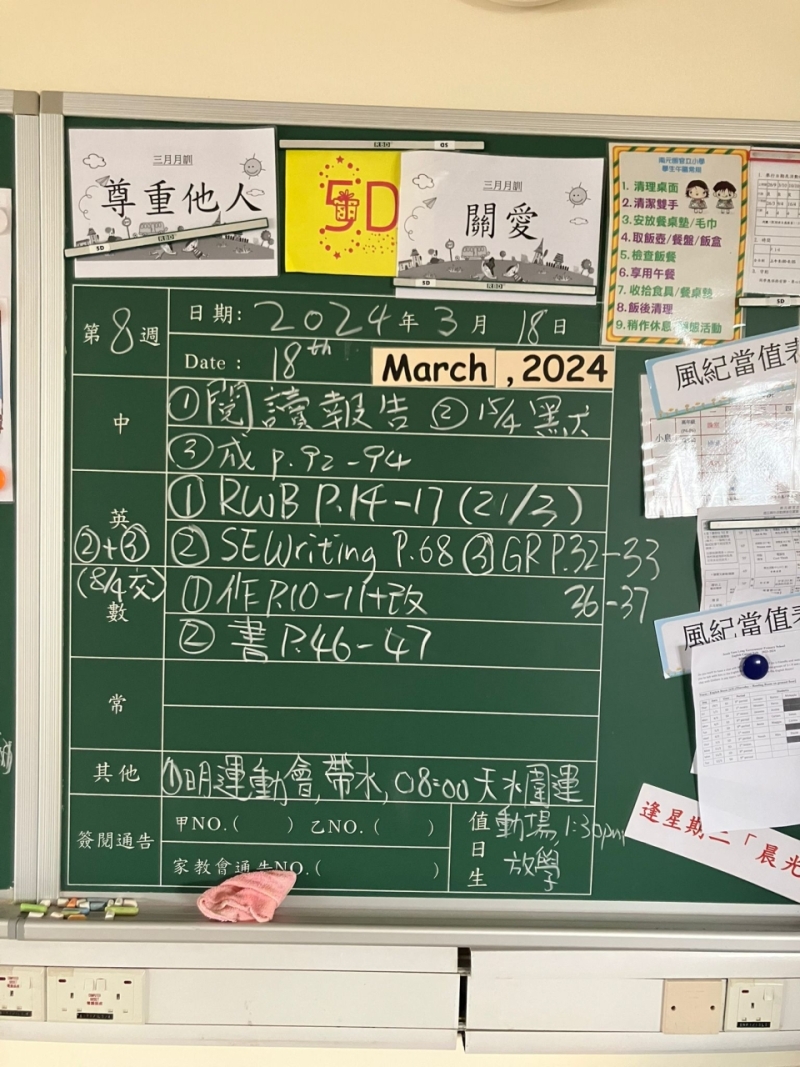 三月月訓
尊重他人
5D
三月月訓
關愛
學生午膳常規
1. 清理桌面
2. 清潔雙手
3. 安放餐桌墊/毛巾
4. 取飯壺/餐盤/飯盒
5. 檢查飯餐
6. 享用午餐
7. 收拾食具/餐桌墊
8. 飯後清理
9. 稍作休息
第8週
日期: 2024年3月18日
Date : 18th March , 2024
中
①閱讀報告 ②15/4 默
③成 p.92-94
英
②+③
(8/4交)
① RWB P.14-17 (21/3)
② SEWriting P.68 ③ GR P.32-33
36-37
數
①作 P.10-11+改
② 書 P.46-47
常
其他
①明運動會,帶水,08:00 天水圍運
動場 1:30pm
放學
簽閱通告
甲NO.( ) 乙NO.( )
家教會通告NO.( )
值日生
風紀當值表
風紀當值表
逢星期二「晨光